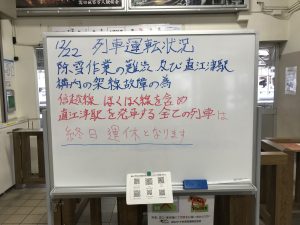 12/22 列車運転状況
除雪作業の難渋及び直江津駅
構内の架線故障の為
信越線 ほくほく線を含め
直江津駅を発車する全ての列車は
終日運休となります